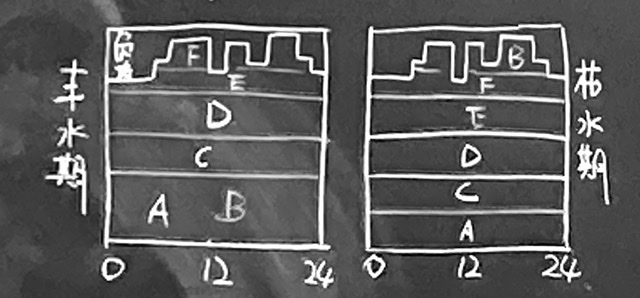 丰水期
负荷
F
E
D
C
A B
0 12 24
枯水期
B
F
E
D
C
A
0 12 24